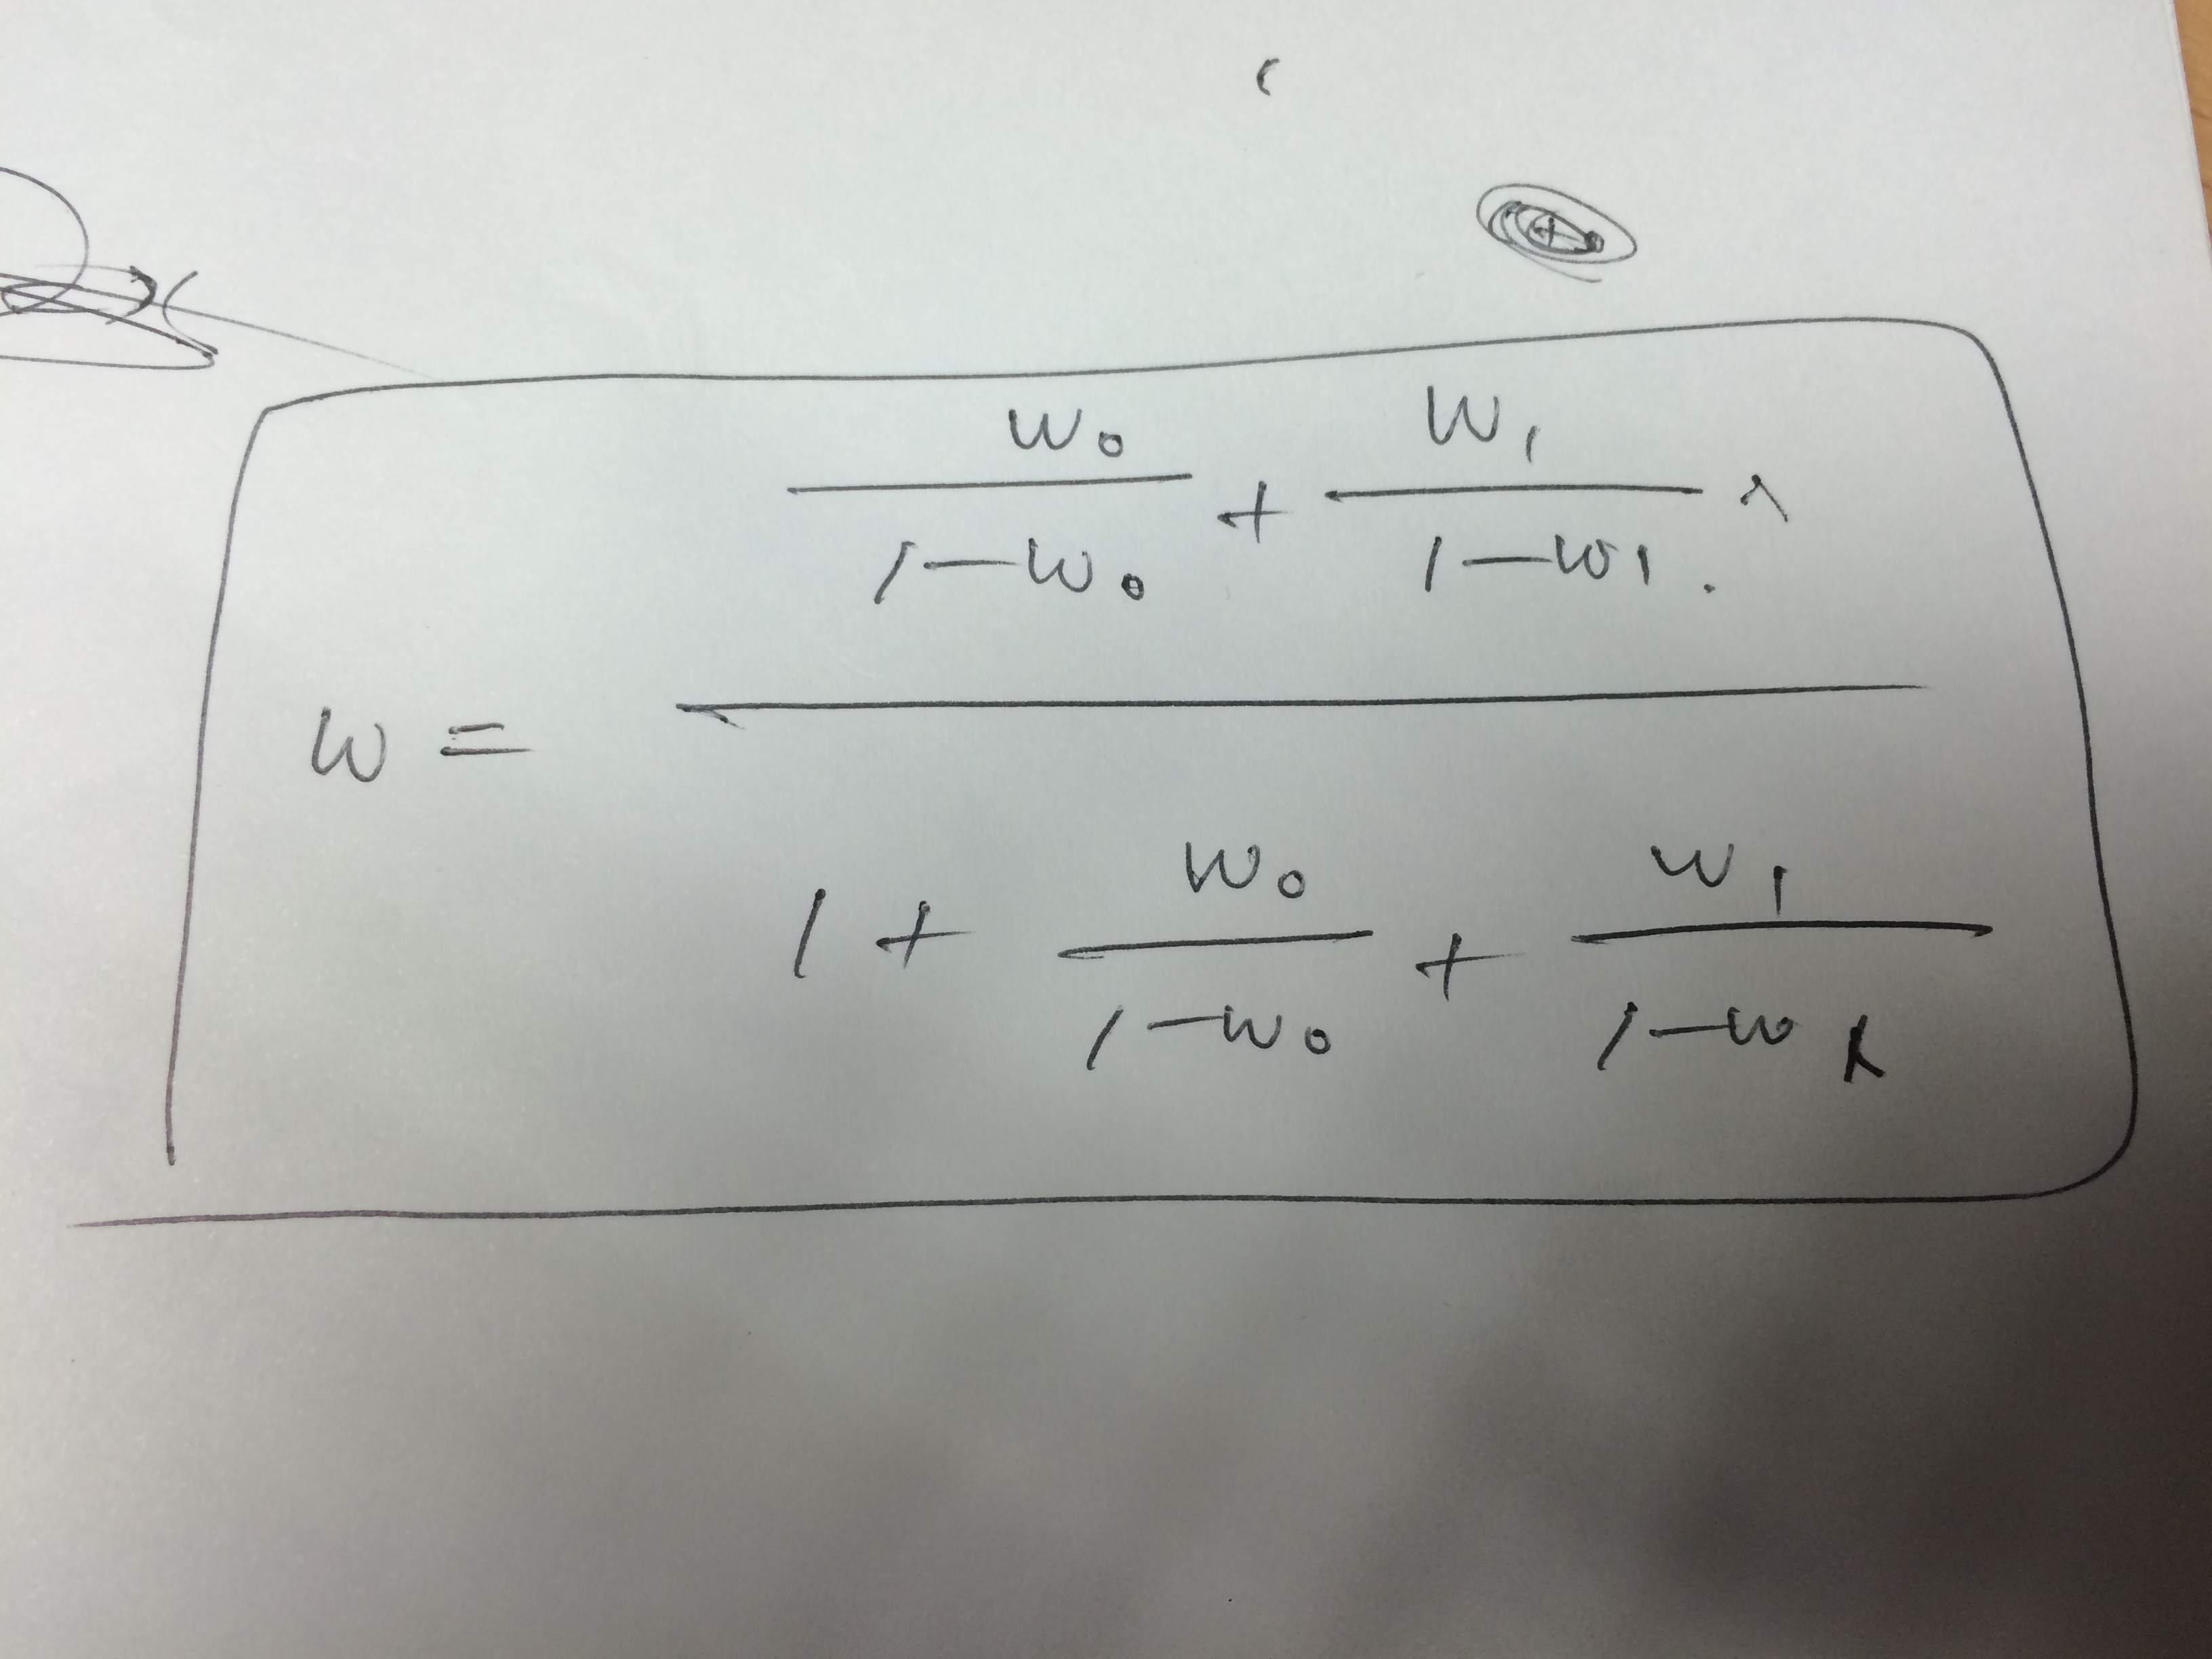 w = \frac{\frac{w_0}{1-w_0} + \frac{w_1}{1-w_1}}{1 + \frac{w_0}{1-w_0} + \frac{w_1}{1-w_1}}